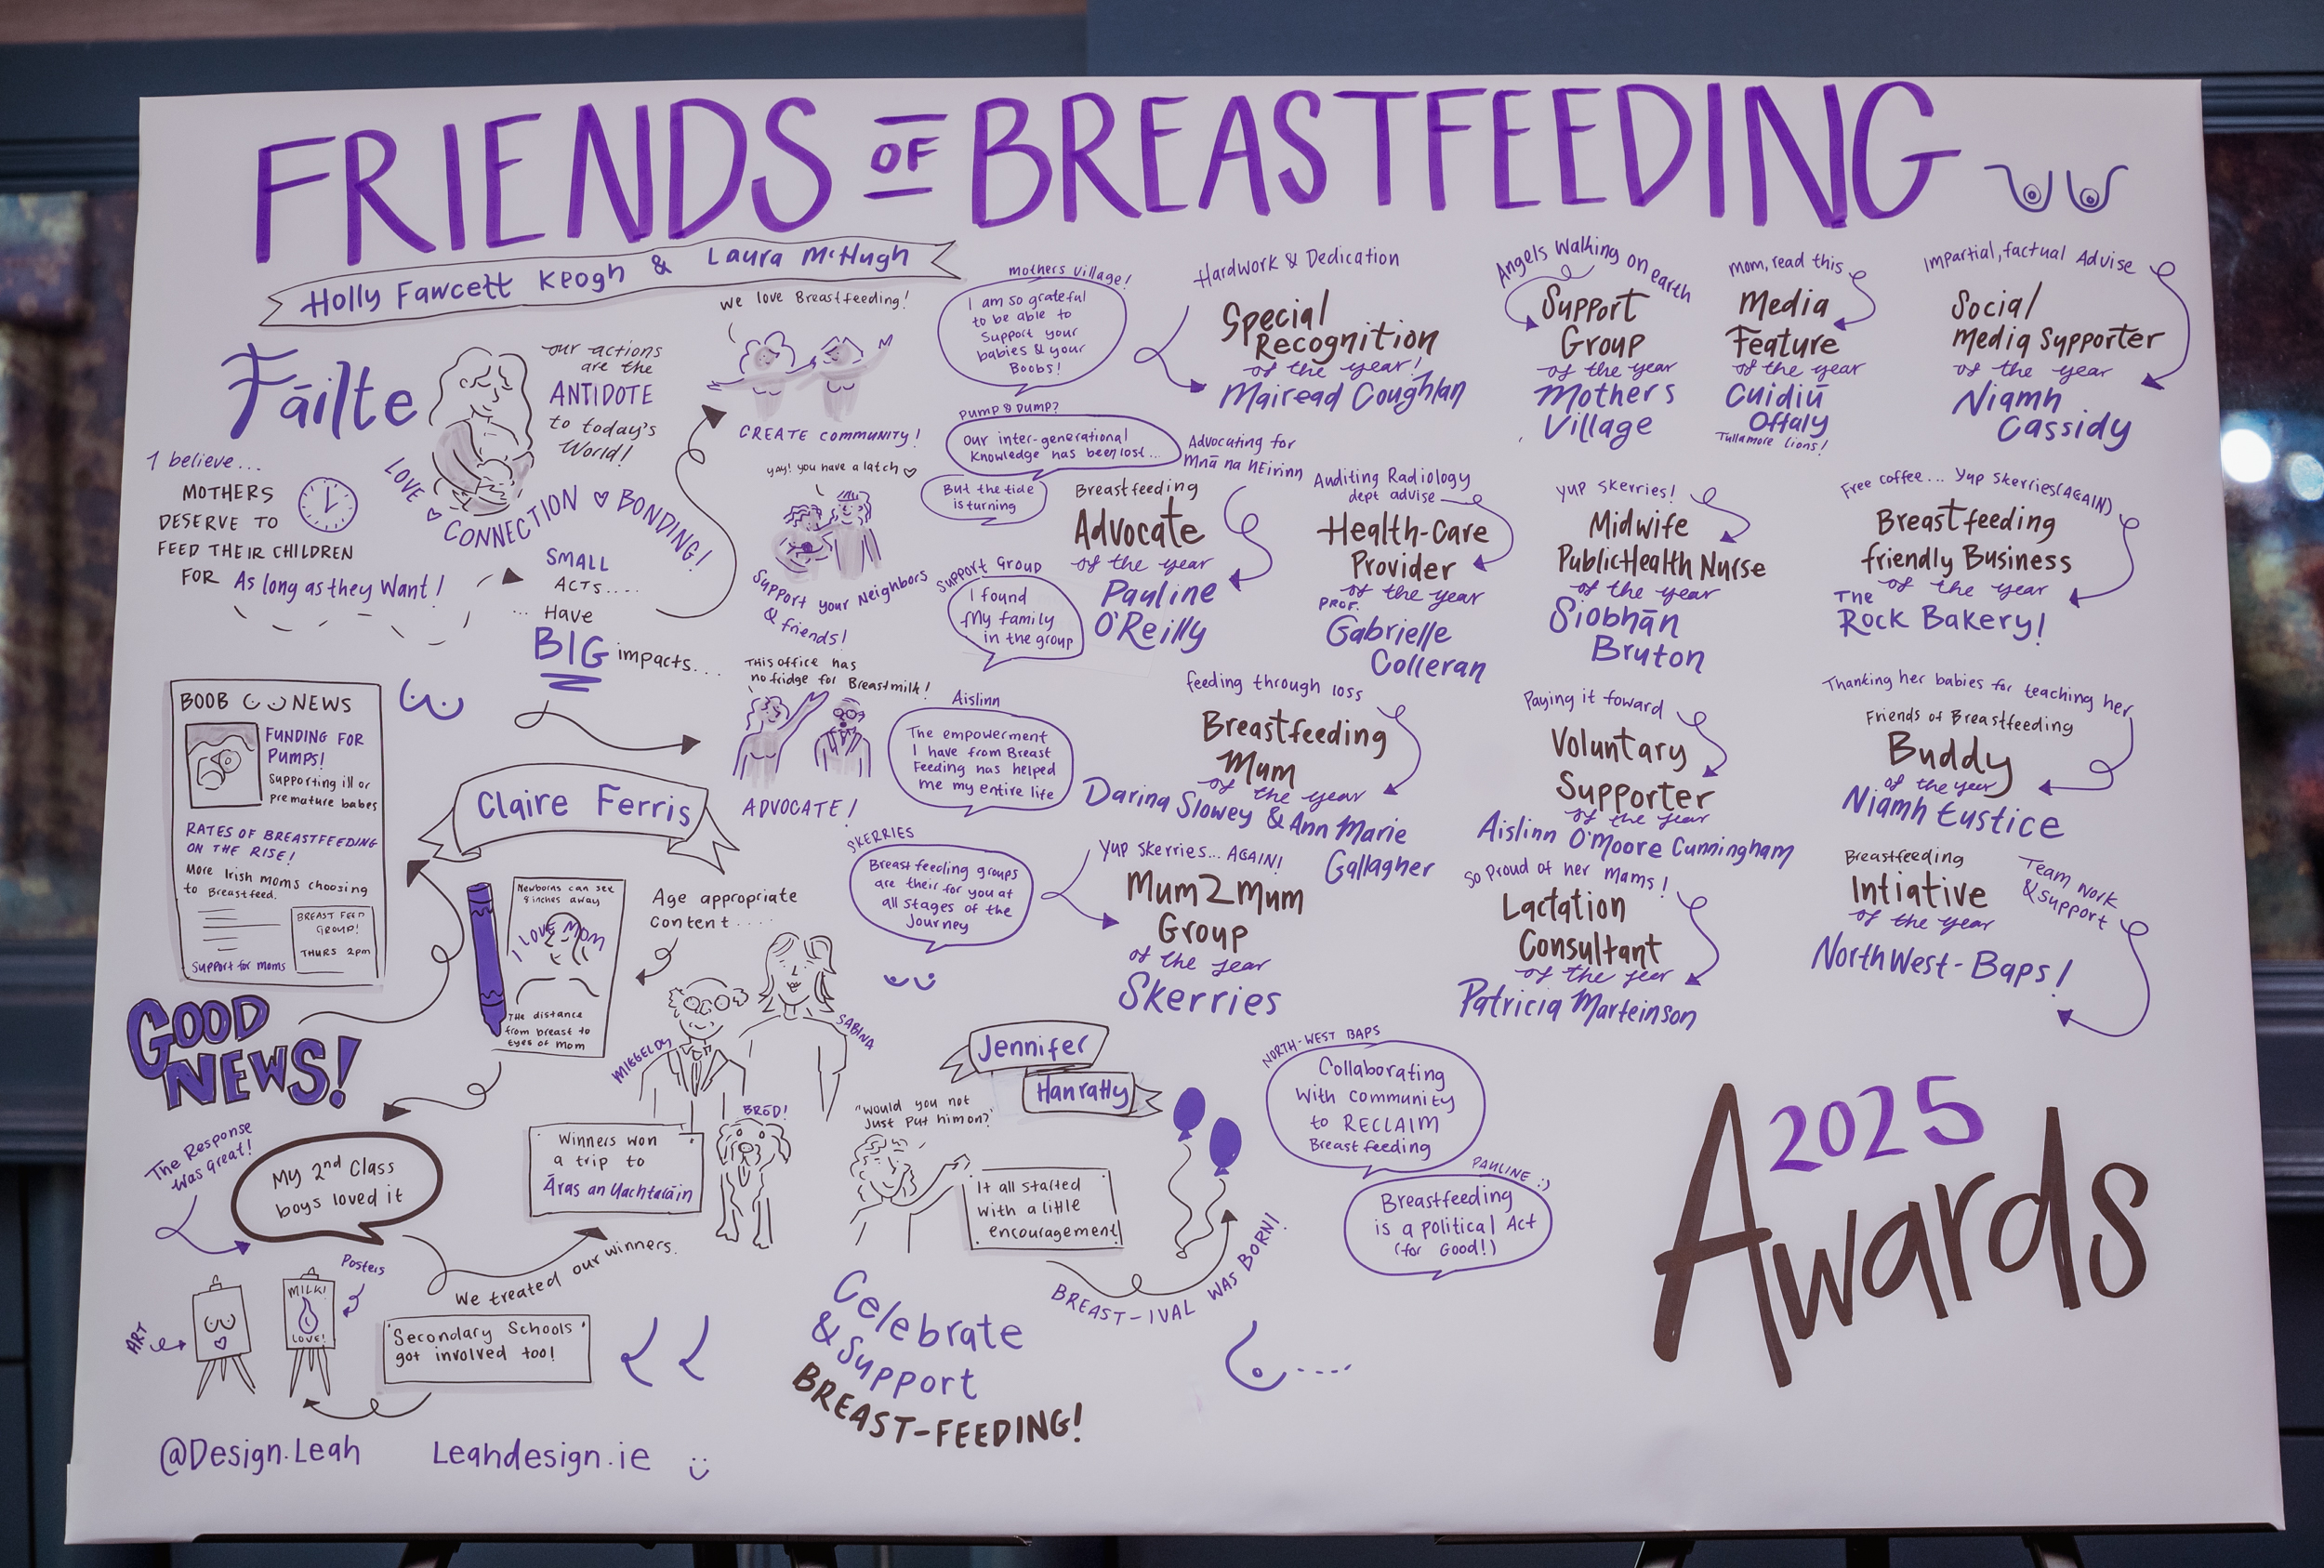 FRIENDS OF BREASTFEEDING
Holly Fawcett Keogh & Laura McHugh
Fāilte
our actions
are the
ANTIDOTE
to today's
World!
LOVE ♡ CONNECTION ♡ BONDING!
I believe...
MOTHERS
DESERVE TO
FEED THEIR CHILDREN
FOR As long as they Want!
SMALL
ACTS....
... Have
BIG impacts...
we love Breastfeeding!
CREATE COMMUNITY!
yay! you have a latch ♡
Support your Neighbors
& friends!
This office has
no fridge for Breastmilk!
ADVOCATE!
Mothers Village!
I am so grateful
to be able to
Support your
babies & your
Boobs!
Pump & Dump?
Our inter-generational
Knowledge has been lost...
But the tide
is turning
Support Group
I found
My family
in the group
Aislinn
The empowerment
I have from Breast
Feeding has helped
me my entire life
SKERRIES
Breastfeeding groups
are their for you at
all stages of the
Journey
Hardwork & Dedication
Special
Recognition
of the year!
Mairead Coughlan
Angels Walking on earth
Support
Group
of the year
Mothers
Village
Mom, read this
Media
Feature
of the year
Cuidiū
Offaly
Tullamore Lions!
Impartial, factual Advise
Social
Media Supporter
of the year
Niamh
Cassidy
Advocating for
Mnā na hEirinn
Breastfeeding
Advocate
of the year
Pauline
O'Reilly
Auditing Radiology
dept advise
Health-Care
Provider
of the year
PROF.
Gabrielle
Colleran
Yup Skerries!
Midwife
Public Health Nurse
of the year
Siobhān
Bruton
Free coffee... Yup Skerries (AGAIN)
Breastfeeding
friendly Business
of the year
The
Rock Bakery!
feeding through loss
Breastfeeding
Mum
of the year
Darina Slowey & Ann Marie
Gallagher
Paying it foward
Voluntary
Supporter
of the year
Aislinn O'Moore Cunningham
Thanking her babies for teaching her
Friends of Breastfeeding
Buddy
of the year
Niamh Eustice
Yup Skerries... AGAIN!
Mum2Mum
Group
of the year
Skerries
So Proud of her Mams!
Lactation
Consultant
of the year
Patricia Marteinson
Breastfeeding
Intiative
of the year
North West-Baps!
Team work
& support
BOOB NEWS
FUNDING FOR
PUMPS!
Supporting ill or
premature babes
RATES OF BREASTFEEDING
ON THE RISE!
More Irish moms choosing
to Breastfeed.
BREAST FEED
GROUP!
THURS 2pm
Support for moms
GOOD
NEWS!
Claire Ferris
Newborns can see
8 inches away
I LOVE MOM
The distance
from breast to
Eyes of mom
Age appropriate
content....
MIGGELDY
SABINA
BRÓD!
Winners won
a trip to
Āras an Uachtarāin
The Response
was great!
My 2nd Class
boys loved it
We treated our winners.
Posters
ART
MILK!
LOVE!
Secondary Schools
got involved too!
Jennifer
Hanratty
"Would you not
Just Put him on?"
It all started
with a little
encouragement!
BREAST-IVAL WAS BORN!
NORTH-WEST BAPS
Collaborating
with community
to RECLAIM
Breastfeeding
PAULINE :)
Breastfeeding
is a political Act
(for Good!)
Celebrate
& Support
BREAST-FEEDING!
2025
Awards
@Design.Leah
Leahdesign.ie